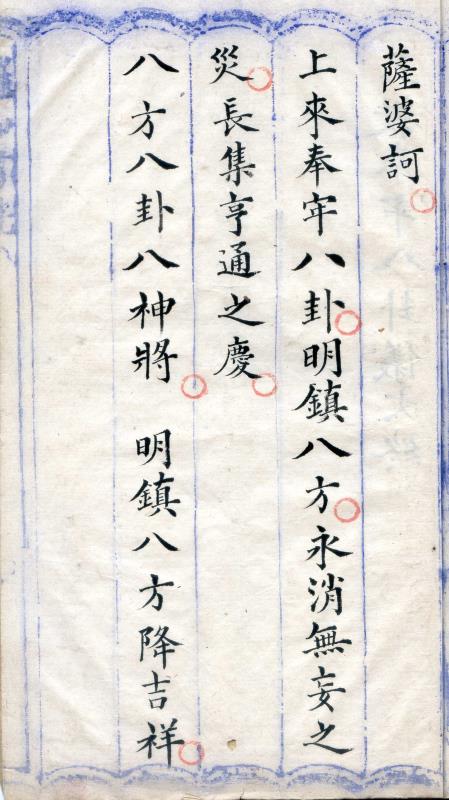 薩婆訶
上來奉牢八卦明鎮八方永消無妄之
災長集亨通之慶
八方八卦八神將　明鎮八方降吉祥